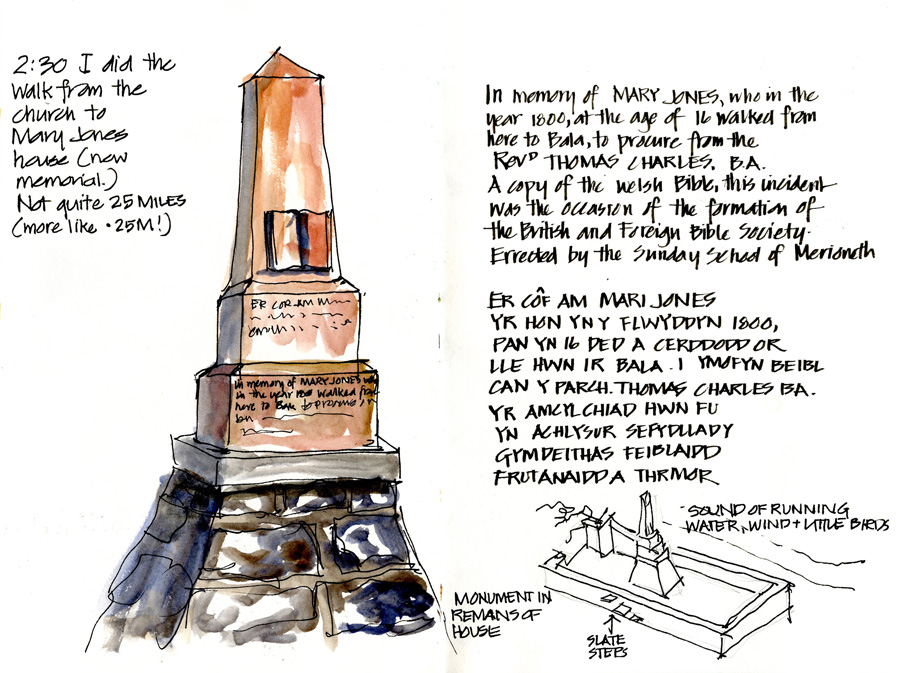 2:30 I did the
walk from the
church to
Mary Jones
house (now
memorial.)
Not quite 25 MILES
(more like .25M!)
ER COF AM
In memory of MARY JONES who
in the year 1800 walked from
here to Bala to procure
In memory of MARY JONES, who in the
year 1800, at the age of 16 walked from
here to Bala, to procure from the
REVD THOMAS CHARLES, B.A.
A copy of the welsh Bible, this incident
was the occasion of the formation of
the British and Foreign Bible Society.
Errected by the Sunday School of Merioneth
ER CÔF AM MARI JONES
YR HON YN Y FLWYDDYN 1800,
PAN YN 16 DED A CERDDODD OR
LLE HWN IR BALA. I YMOFYN BEIBL
CAN Y PARCH. THOMAS CHARLES BA.
YR AMCYLCHIAD HWN FU
YN ACHLYSUR SEFYDLLADY
GYMDEITHAS FEIBLAIDD
FRUTANAIDD A THRMOR
SOUND OF RUNNING
WATER, WIND + LITTLE BIRDS
MONUMENT IN
REMAINS OF
HOUSE
SLATE
STEPS